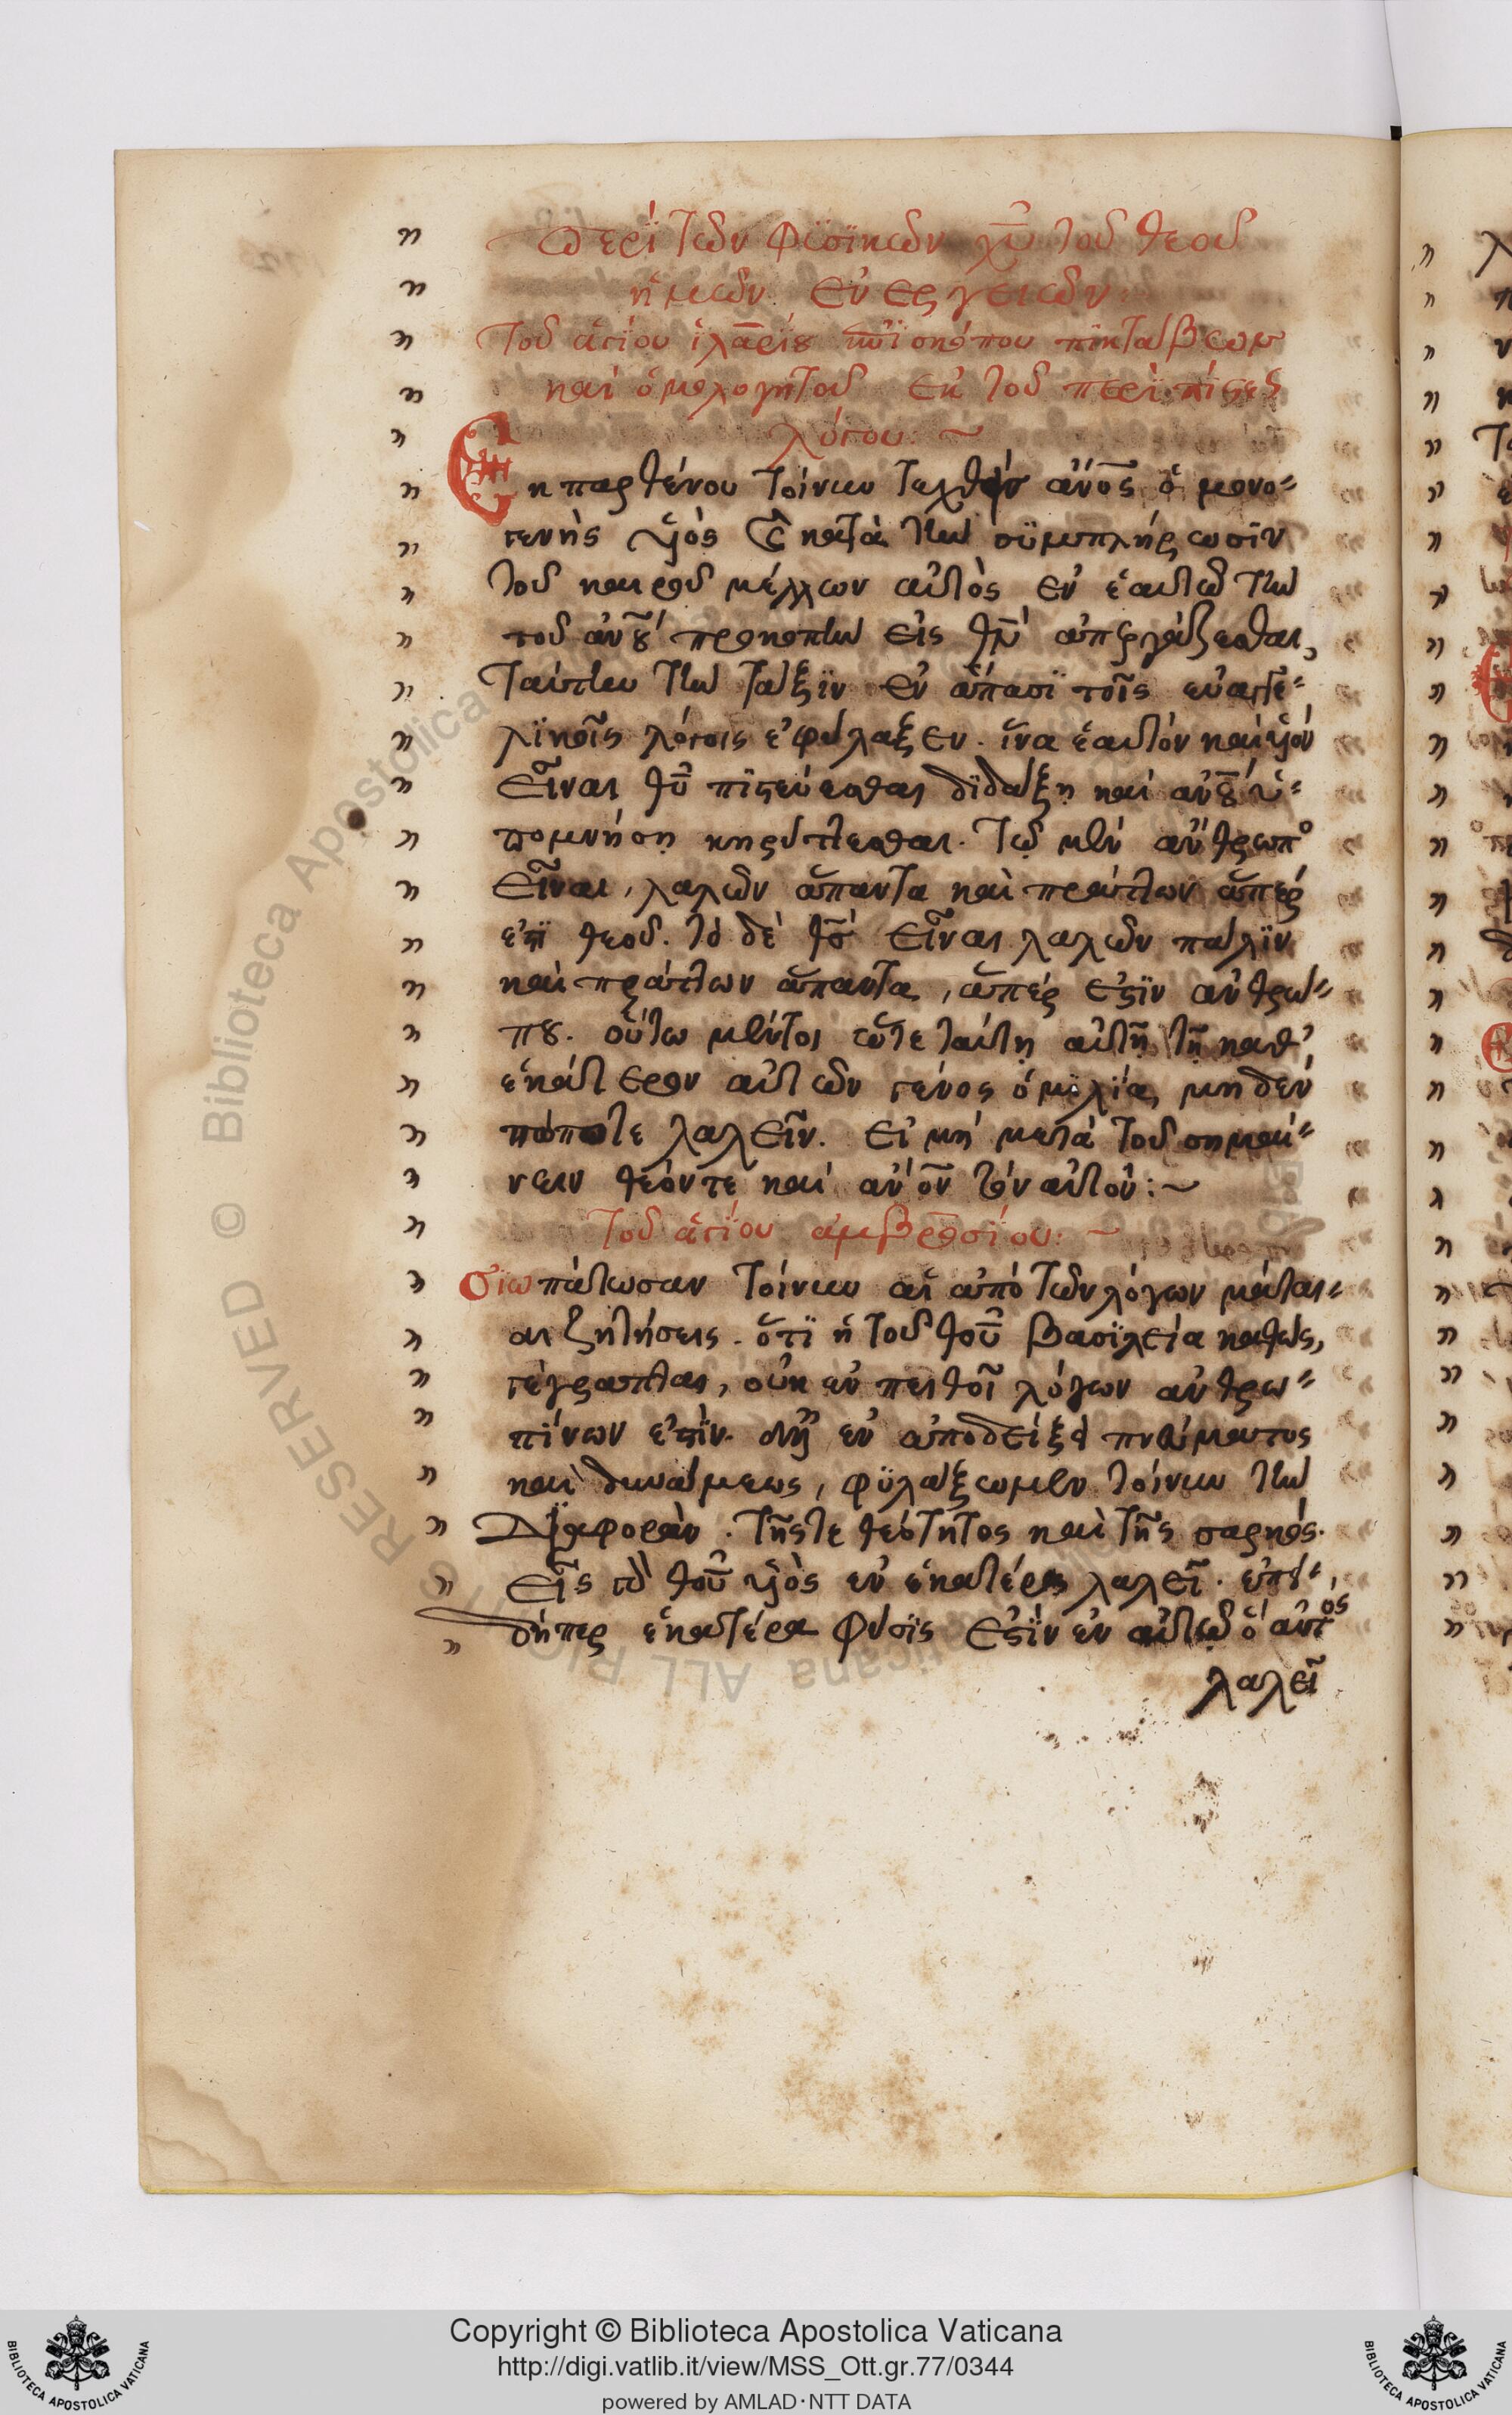 περὶ τῶν φϋσϊκῶν χῦ τοῦ θεοῦ
ἡμῶν ἐνεργειῶν:
τοῦ ἁγίου ἱλαρίου ἐπϊσκόπου πϊκταβεων
καὶ ὁμολογητοῦ ἐκ τοῦ περὶ πίστεως
λόγου: ~
Ἐκ παρθένου τοίνυν τεχθεὶς ἄνος ὁ μονο-
γενὴς υἱὸς καὶ κατὰ τὴν σϋμπλήρωσϊν
τοῦ καιροῦ μέλλων αὐτὸς ἐν ἑαυτῶ τὴν
τοῦ ἀνου προκοπὴν εἰς θν ἀπεργάζεσθαι,
ταύτην τὴν τάξϊν ἐν ἅπασϊ τοῖς εὐαγγε-
λϊκοῖς λόγοις ἐφύλαξεν. ἵνα ἑαυτὸν καὶ υἱὸν
εἶναι θῦ πϊστεύεσθαι δϊδάξη καὶ ἀνου ὑ-
πομνήση κηρύττεσθαι. τῶ μὲν ἄνθρωπος
εἶναι, λαλῶν ἅπαντα καὶ πράττων ἅπερ
ἐπὶ θεοῦ. τὸ δὲ θς εἶναι λαλῶν πάλϊν
καὶ πράττων ἅπαντα, ἅπερ ἐστὶν ἀνθρώ-
που. οὕτω μέντοι ὥστε ταύτη αὐτῆ τῆ καθ'
ἑκάτερον αὐτῶν γένος ὁμϊλία, μηδὲν
πόποτε λαλεῖν. εἰ μὴ μετὰ τοῦ σημαί-
νειν θεόν τε καὶ ἄνον τὸν αὐτόν: ~
τοῦ ἁγίου ἀμβροσίου: ~
σϊωπάτωσαν τοίνυν αἱ ἀπὸ τῶν λόγων μάται-
αι ζητήσεις. ὅτϊ ἡ τοῦ θοῦ βασϊλεία καθὼς,
γέγραπται, οὐκ ἐν πειθοῖ λόγων ἀνθρω-
πίνων ἐστὶν. ἀλλ' ἐν ἀποδείξει πνεύματος
καὶ δυνάμεως, φϋλάξωμεν τοίνυν τὴν
διαφορὰν. τῆς τε θεότητος καὶ τῆς σαρκός.
εἷς τοῦ θοῦ υἱὸς ἐν ἑκατέρα λαλεῖ. ἐπει-
δήπερ ἑκατέρα φύσϊς ἐστὶν ἐν αὐτῶ ὁ αὐτος
λαλεῖ
Copyright © Biblioteca Apostolica Vaticana
http://digi.vatlib.it/view/MSS_Ott.gr.77/0344
powered by AMLAD·NTT DATA